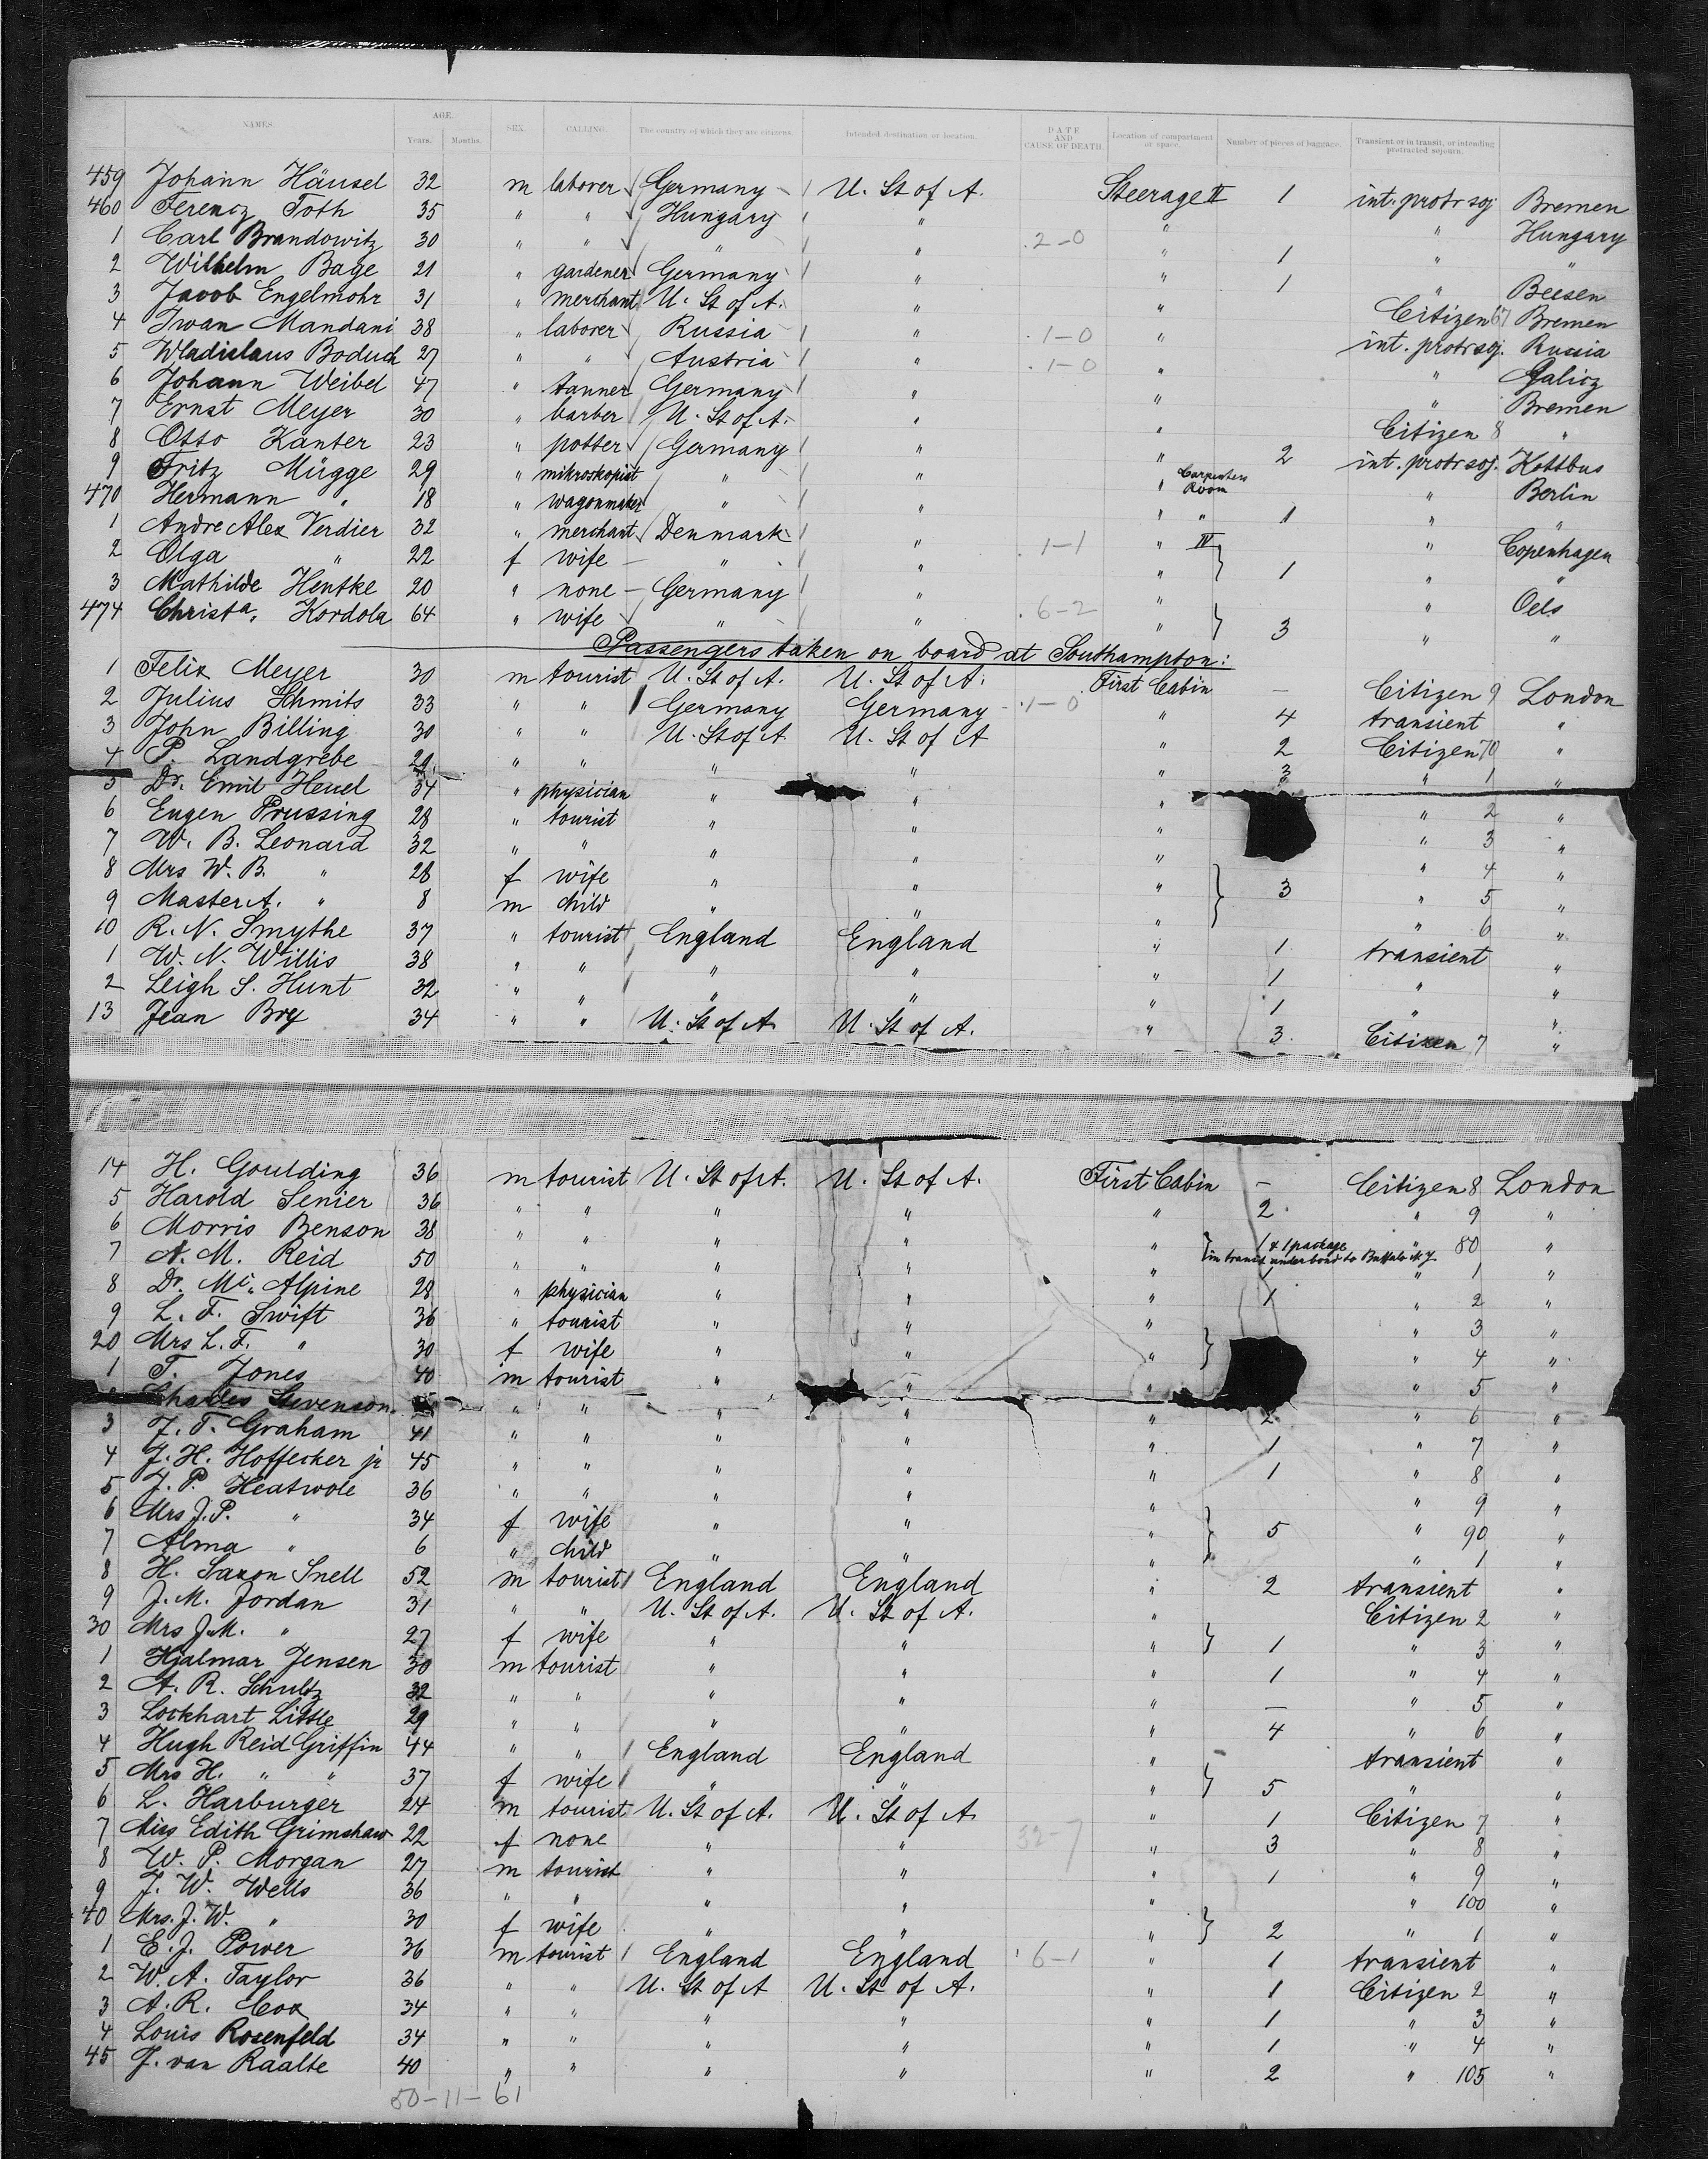 NAMES. AGE. Years. Months. SEX. CALLING. The country of which they are citizens. Intended destination or location. DATE AND CAUSE OF DEATH. Location of compartment or space. Number of pieces of baggage. Transient or in transit, or intending protracted sojourn.
459 Johann Häusel 32 m laborer Germany U. St of A. Steerage II 1 int. protr soj Bremen
460 Ferencz Toth 35 " " Hungary " " " Hungary
1 Carl Brandowitz 30 " " " " 2-0 " 1 " "
2 Wilhelm Bage 21 " gardener Germany " " 1 " Beesen
3 Jacob Engelmohr 31 " merchant U. St of A. " " Citizen 67 Bremen
4 Iwan Mandani 38 " laborer Russia " 1-0 " int. protr soj. Russia
5 Wladislaus Boduch 27 " " Austria " 1-0 " " Galicz
6 Johann Weibel 47 " tanner Germany " " " Bremen
7 Ernst Meyer 30 " barber U. St of A. " " Citizen 8 "
8 Otto Kanter 23 " potter Germany " " 2 int. protr soj. Kottbus
9 Fritz Mügge 29 " mikroskopist " " " Carpenters Room " Berlin
470 Hermann " 18 " wagonmaker " " " " 1 " "
1 Andre Alex Verdier 32 " merchant Denmark " 1-1 " IV " Copenhagen
2 Olga " 22 f wife " " " 1 " "
3 Mathilde Hentke 20 " none Germany " 6-2 " " Oels
474 Christa. Kordola 64 " wife " " " 3 " "
Passengers taken on board at Southampton:
1 Felix Meyer 30 m tourist U. St of A. U. St of A. First Cabin — Citizen 9 London
2 Julius Schmits 33 " " Germany Germany 1-0 " 4 transient "
3 John Billing 30 " " U. St of A U. St of A " 2 Citizen 70 "
4 P. Landgrebe 29 " " " " " 3 " 1 "
5 Dr. Emil Heuel 34 " physician " " " " 2 "
6 Eugen Prussing 28 " tourist " " " " 3 "
7 W. B. Leonard 32 " " " " " " 4 "
8 Mrs W. B. " 28 f wife " " " 3 " 5 "
9 Master A. " 8 m child " " " " 6 "
10 R. N. Smythe 37 " tourist England England " 1 transient "
1 W. N. Willis 38 " " " " " 1 " "
2 Leigh S. Hunt 32 " " " " " 1 " "
13 Jean Bry 34 " " U. St of A U. St of A. " 3. Citizen 7 "
14 H. Goulding 36 m tourist U. St of A. U. St of A. First Cabin — Citizen 8 London
5 Harold Senier 36 " " " " " 2 " 9 "
6 Morris Benson 38 " " " " " 1 & 1 package in transit under bond to Buffalo N.Y. " 80 "
7 A. M. Reid 50 " " " " " 1 " 1 "
8 Dr. Mc. Alpine 28 " physician " " " 1 " 2 "
9 L. F. Swift 36 " tourist " " " " 3 "
20 Mrs L. F. " 30 f wife " " " " 4 "
1 T. Jones 40 m tourist " " " " 5 "
Charles Stevenson " " " " " 2 " 6 "
3 J. T. Graham 41 " " " " " 1 " 7 "
4 J. H. Hoffecker jr 45 " " " " " 1 " 8 "
5 J. P. Heatwole 36 " " " " " " 9 "
6 Mrs J. P. " 34 f wife " " " 5 " 90 "
7 Alma " 6 " child " " " " 1 "
8 H. Saxon Snell 52 m tourist England England " 2 transient "
9 J. M. Jordan 31 " " U. St of A. U. St of A. " Citizen 2 "
30 Mrs J. M. " 27 f wife " " " 1 " 3 "
1 Hjalmar Jensen 30 m tourist " " " 1 " 4 "
2 A. R. Schultz 32 " " " " " — " 5 "
3 Lockhart Little 29 " " " " " 4 " 6 "
4 Hugh Reid Griffin 44 " " England England " transient "
5 Mrs H. " " 37 f wife " " " 5 " "
6 L. Harburger 24 m tourist U. St of A. U. St of A. " 1 Citizen 7 "
7 Miss Edith Grimshaw 22 f none " " 32-7 " 3 " 8 "
8 W. P. Morgan 27 m tourist " " " 1 " 9 "
9 J. W. Wells 36 " " " " " " 100 "
40 Mrs. J. W. " 30 f wife " " " 2 " 1 "
1 E. J. Power 36 m tourist England England 6-1 " 1 transient "
2 W. A. Taylor 36 " " U. St of A U. St of A. " 1 Citizen 2 "
3 A. R. Cox 34 " " " " " 1 " 3 "
4 Louis Rosenfeld 34 " " " " " 1 " 4 "
45 J. van Raalte 40 " " " " " 2 " 105 "
50-11-61